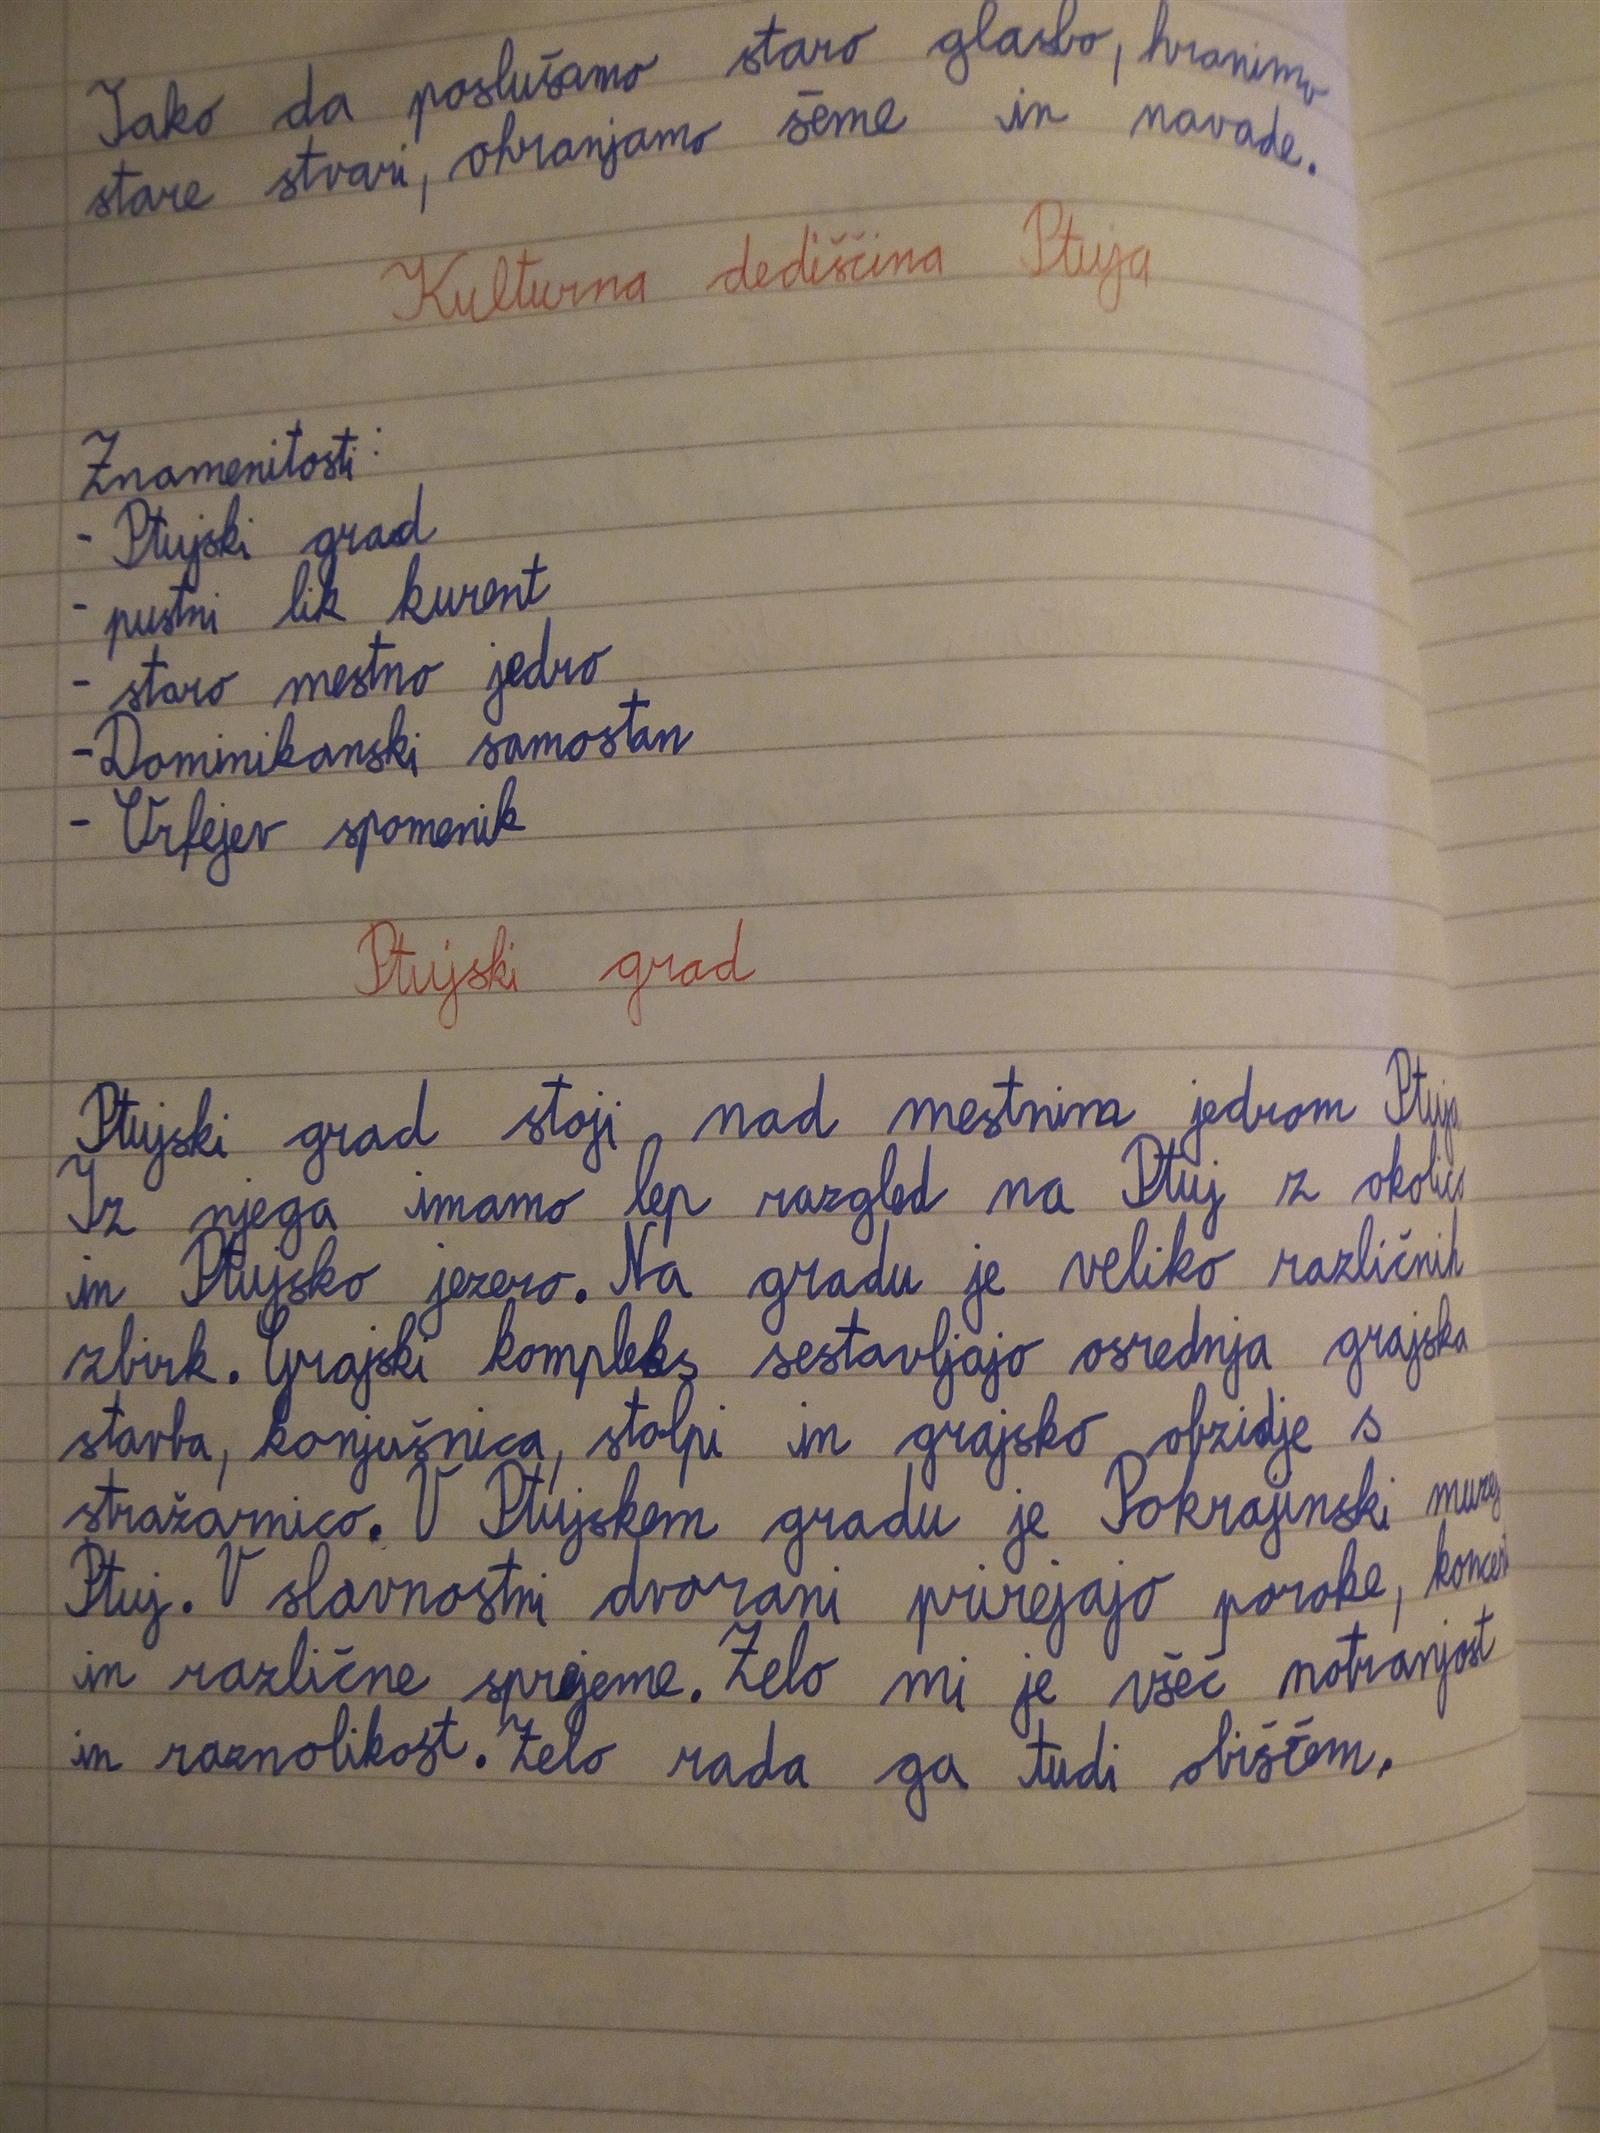 Tako da poslušamo staro glasbo, hranimo
stare stvari, ohranjamo šeme in navade.
Kulturna dediščina Ptuja
Znamenitosti:
- Ptujski grad
- pustni lik kurent
- staro mestno jedro
- Dominikanski samostan
- Orfejev spomenik
Ptujski grad
Ptujski grad stoji nad mestnim jedrom Ptuja
Iz njega imamo lep razgled na Ptuj z okolico
in Ptujsko jezero. Na gradu je veliko različnih
zbirk. Grajski kompleks sestavljajo osrednja grajska
stavba, konjušnica, stolpi in grajsko obzidje s
stražarnico. V Ptujskem gradu je Pokrajinski muzej
Ptuj. V slavnostni dvorani prirejajo poroke,
in različne sprejeme. Zelo mi je všeč notranjost
in raznolikost. Zelo rada ga tudi obiščem.